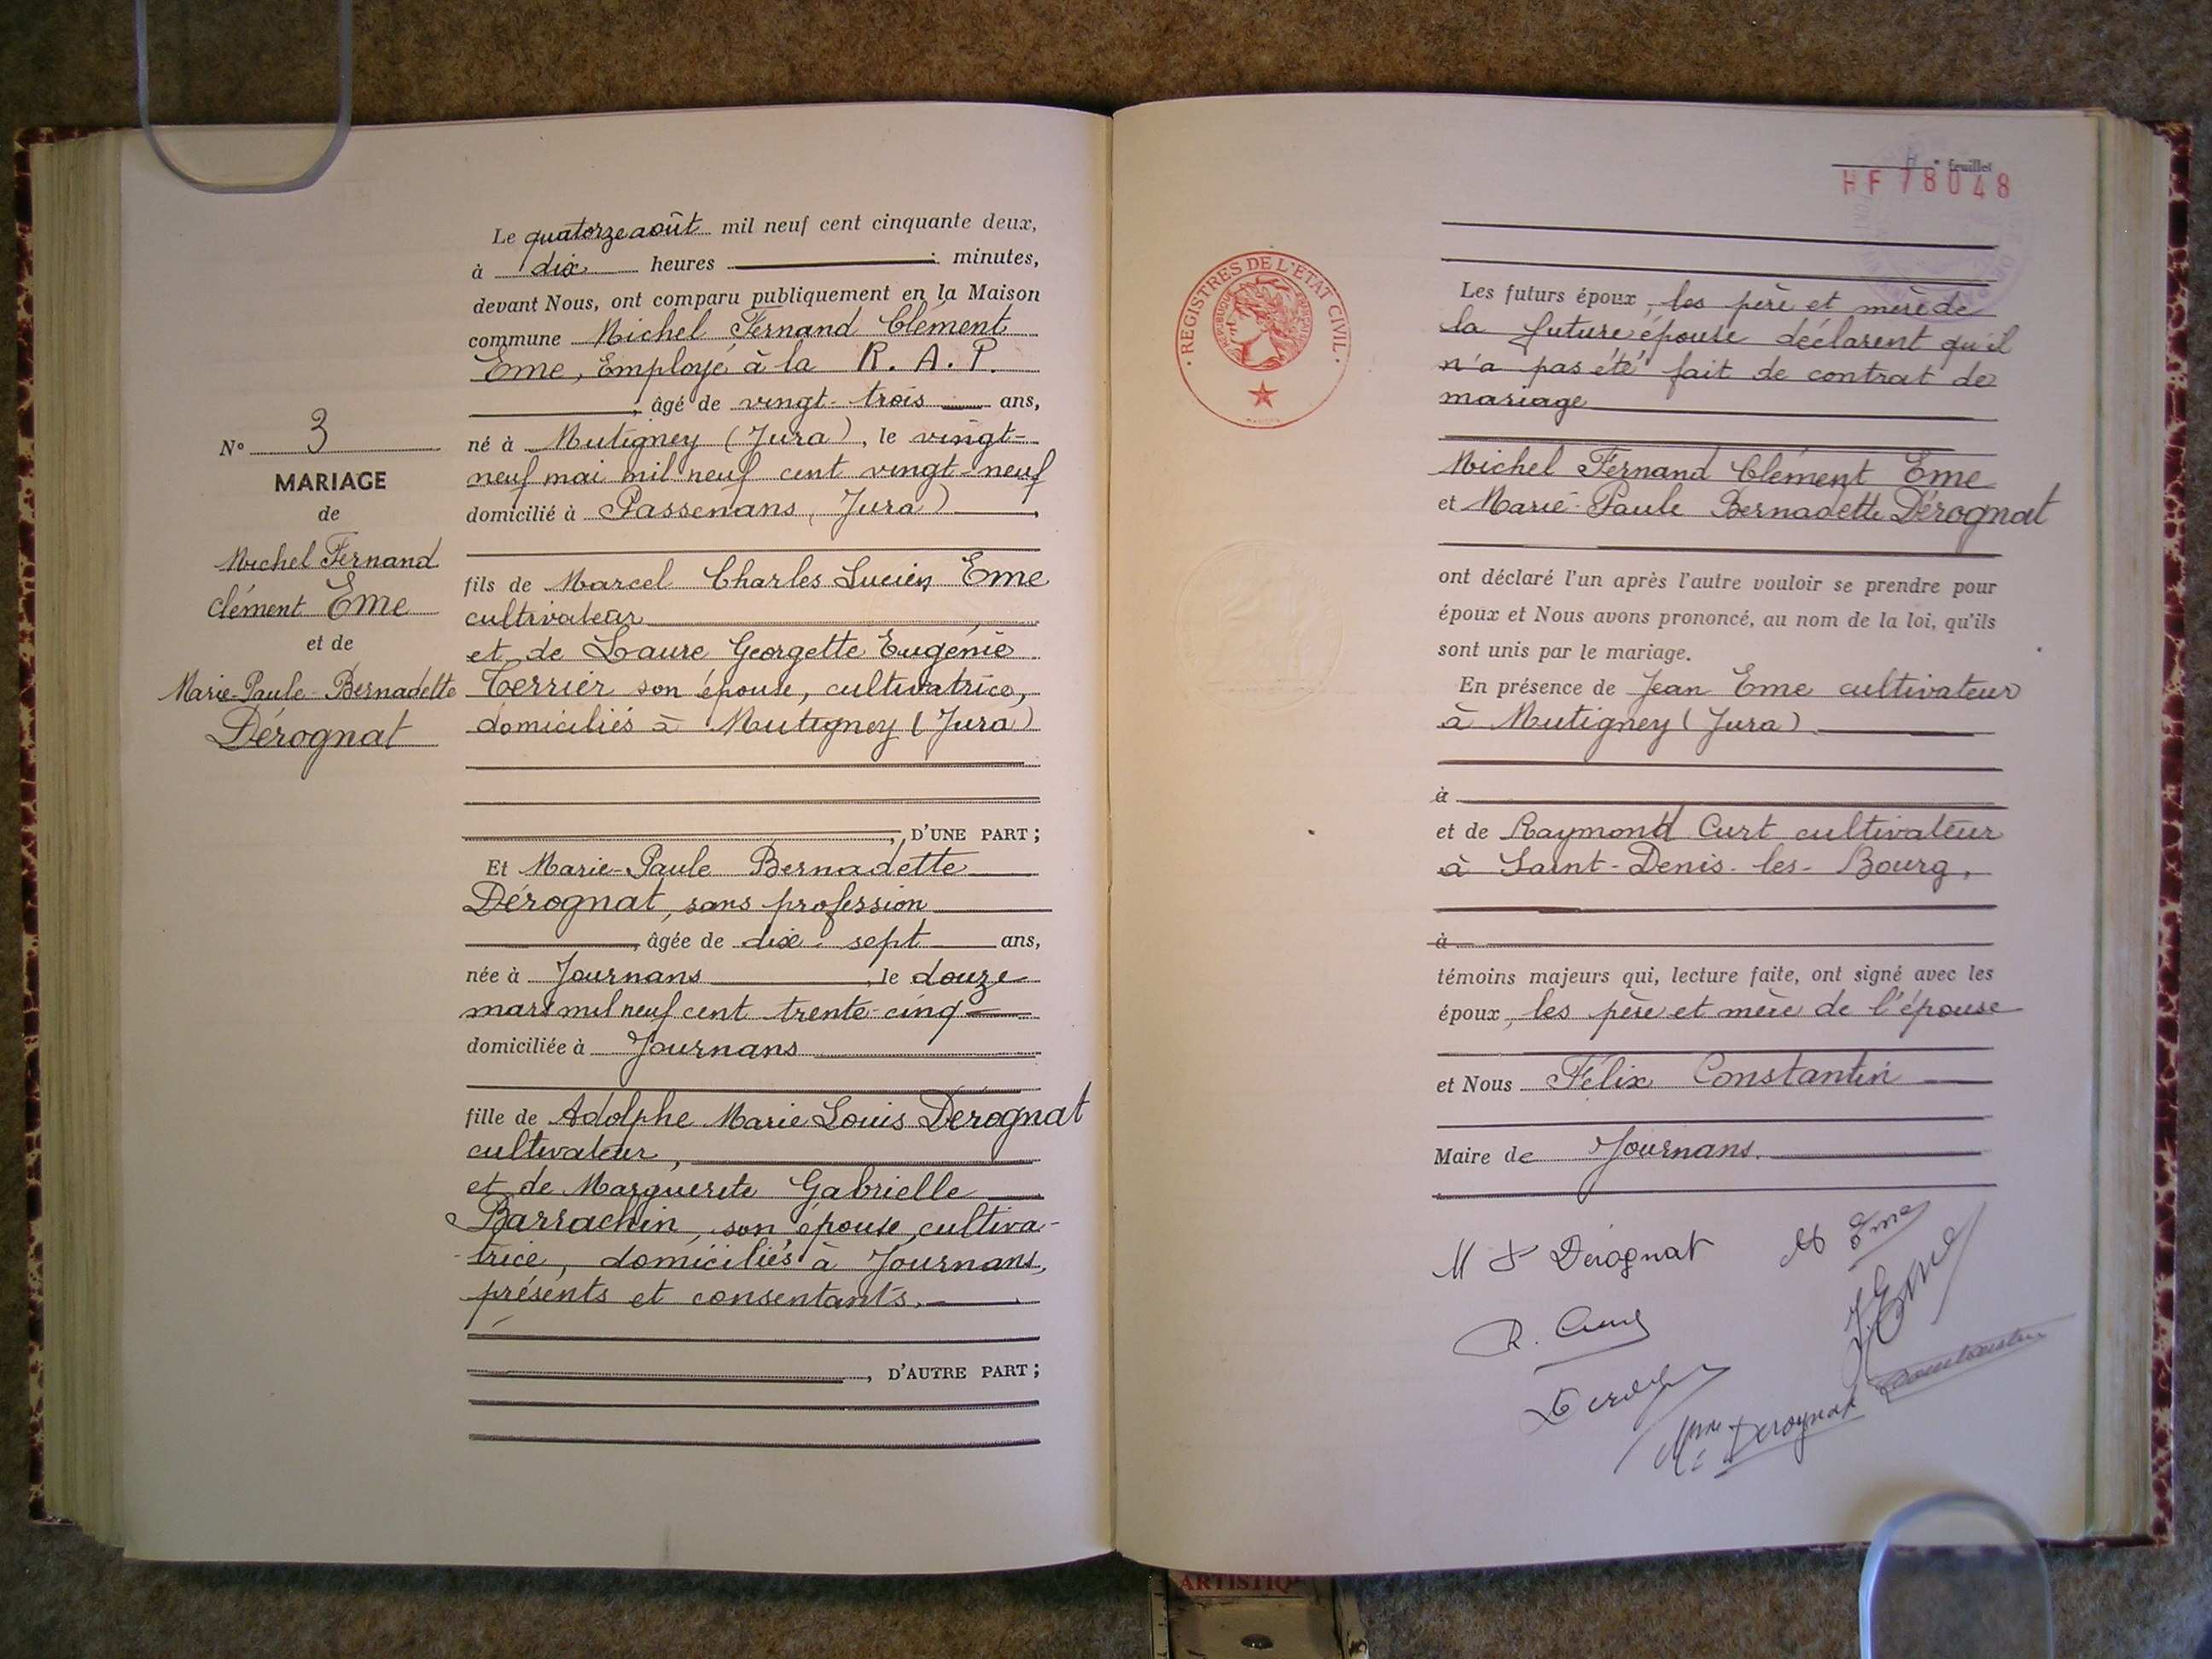 Le quatorze août mil neuf cent cinquante deux,
à dix heures : minutes,
devant Nous, ont comparu publiquement en la Maison
commune Michel Fernand Clément
Eme, Employé à la R. A. P.
, âgé de vingt-trois ans,
né à Mutigney (Jura), le vingt-
neuf mai mil neuf cent vingt-neuf
domicilié à Passenans (Jura),
fils de Marcel Charles Lucien Eme
cultivateur,
et de Laure Georgette Eugénie
Terrier son épouse, cultivatrice,
domiciliés à Mutigney (Jura)
, D'UNE PART ;
Et Marie-Paule Bernadette
Dérognat, sans profession
, âgée de dix-sept ans,
née à Journans, le douze
mars mil neuf cent trente-cinq
domiciliée à Journans
fille de Adolphe Marie Louis Dérognat
cultivateur,
et de Marguerite Gabrielle
Barrachin, son épouse, cultiva-
-trice, domiciliés à Journans,
présents et consentants.
, D'AUTRE PART ;
N° 3
MARIAGE
de
Michel Fernand
Clément Eme
et de
Marie-Paule-Bernadette
Dérognat
feuillet
HF 78048
REGISTRES DE L'ETAT CIVIL
REPUBLIQUE FRANÇAISE
Les futurs époux, les père et mère de
la future épouse déclarent qu'il
n'a pas été fait de contrat de
mariage
Michel Fernand Clément Eme
et Marie-Paule Bernadette Dérognat
ont déclaré l'un après l'autre vouloir se prendre pour
époux et Nous avons prononcé, au nom de la loi, qu'ils
sont unis par le mariage.
En présence de Jean Eme cultivateur
à Mutigney (Jura)
à
et de Raymond Curt cultivateur
à Saint-Denis-les-Bourg,
à
témoins majeurs qui, lecture faite, ont signé avec les
époux, les père et mère de l'épouse
et Nous Félix Constantin
Maire de Journans.
M P Dérognat
M Eme
J. Eme
R. Curt
Mme Derognat
Constantin
ARTISTIQ